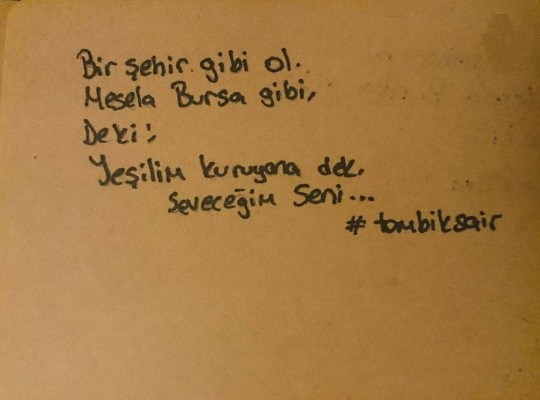 Bir şehir gibi ol.
Mesela Bursa gibi,
De ki;
Yeşilim kuruyana dek.
seveceğim seni...
#tombiksair